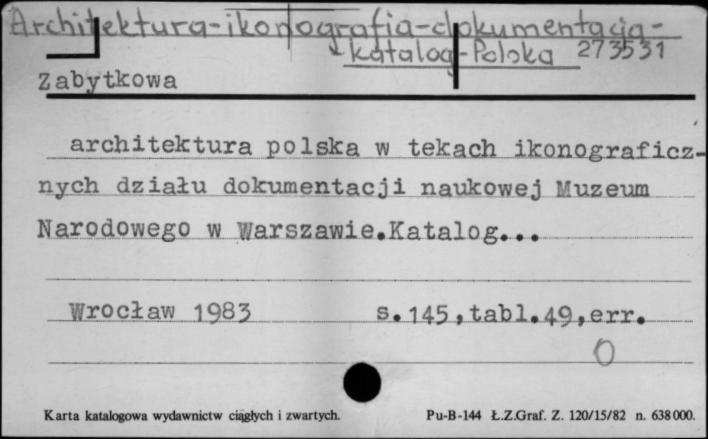 Architektura-ikonografia-dokumentacja-
katalog-Polska 273531
Zabytkowa
architektura polska w tekach ikonograficz-
nych działu dokumentacji naukowej Muzeum
Narodowego w Warszawie.Katalog...
Wrocław 1983 s.145,tabl.49,err.
O
Karta katalogowa wydawnictw ciągłych i zwartych. Pu-B-144 Ł.Z.Graf. Z. 120/15/82 n. 638000.